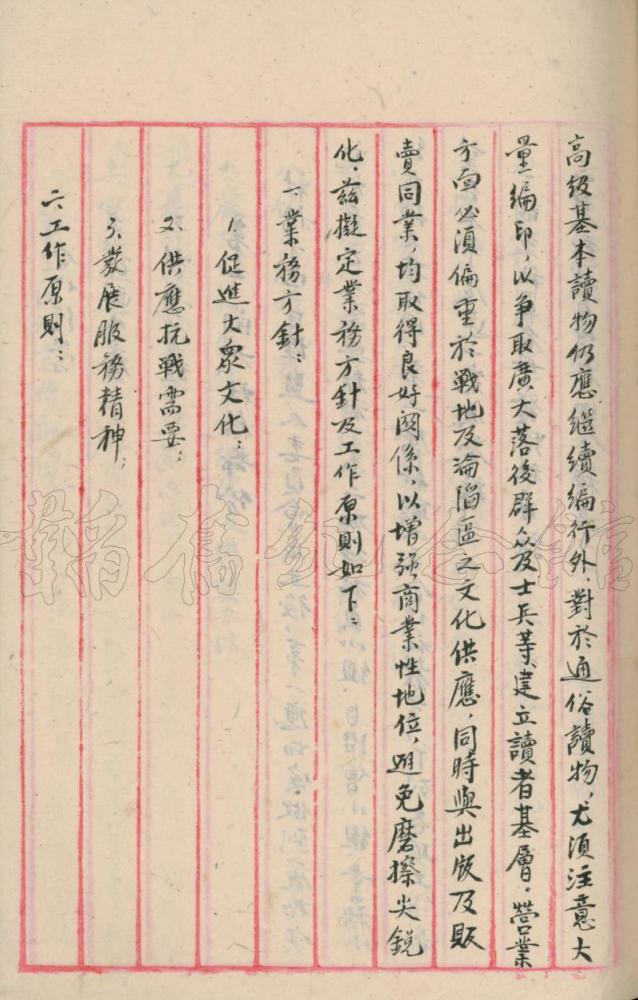 高级基本讀物仍應继續編行外，對於通俗讀物，尤須注意大
量編印，以争取廣大落後群众及士兵等，建立讀者基層，营業
方面必須偏重於戰地及淪陷區之文化供應，同時與出版及販
賣同業，均取得良好関係，以增强商業性地位，避免磨擦尖銳
化，兹擬定業務方針及工作原則如下：
一、業務方針：
1、促進大衆文化；
2、供應抗戰需要；
3、發展服務精神；
二、工作原則：
韜奮紀念館